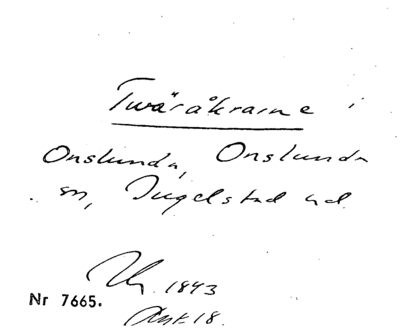 Twäråkrarne i
Onslunda, Onslunda
sn, Ingelstad hd.
1843
Nr 7665.
Ant. 18.